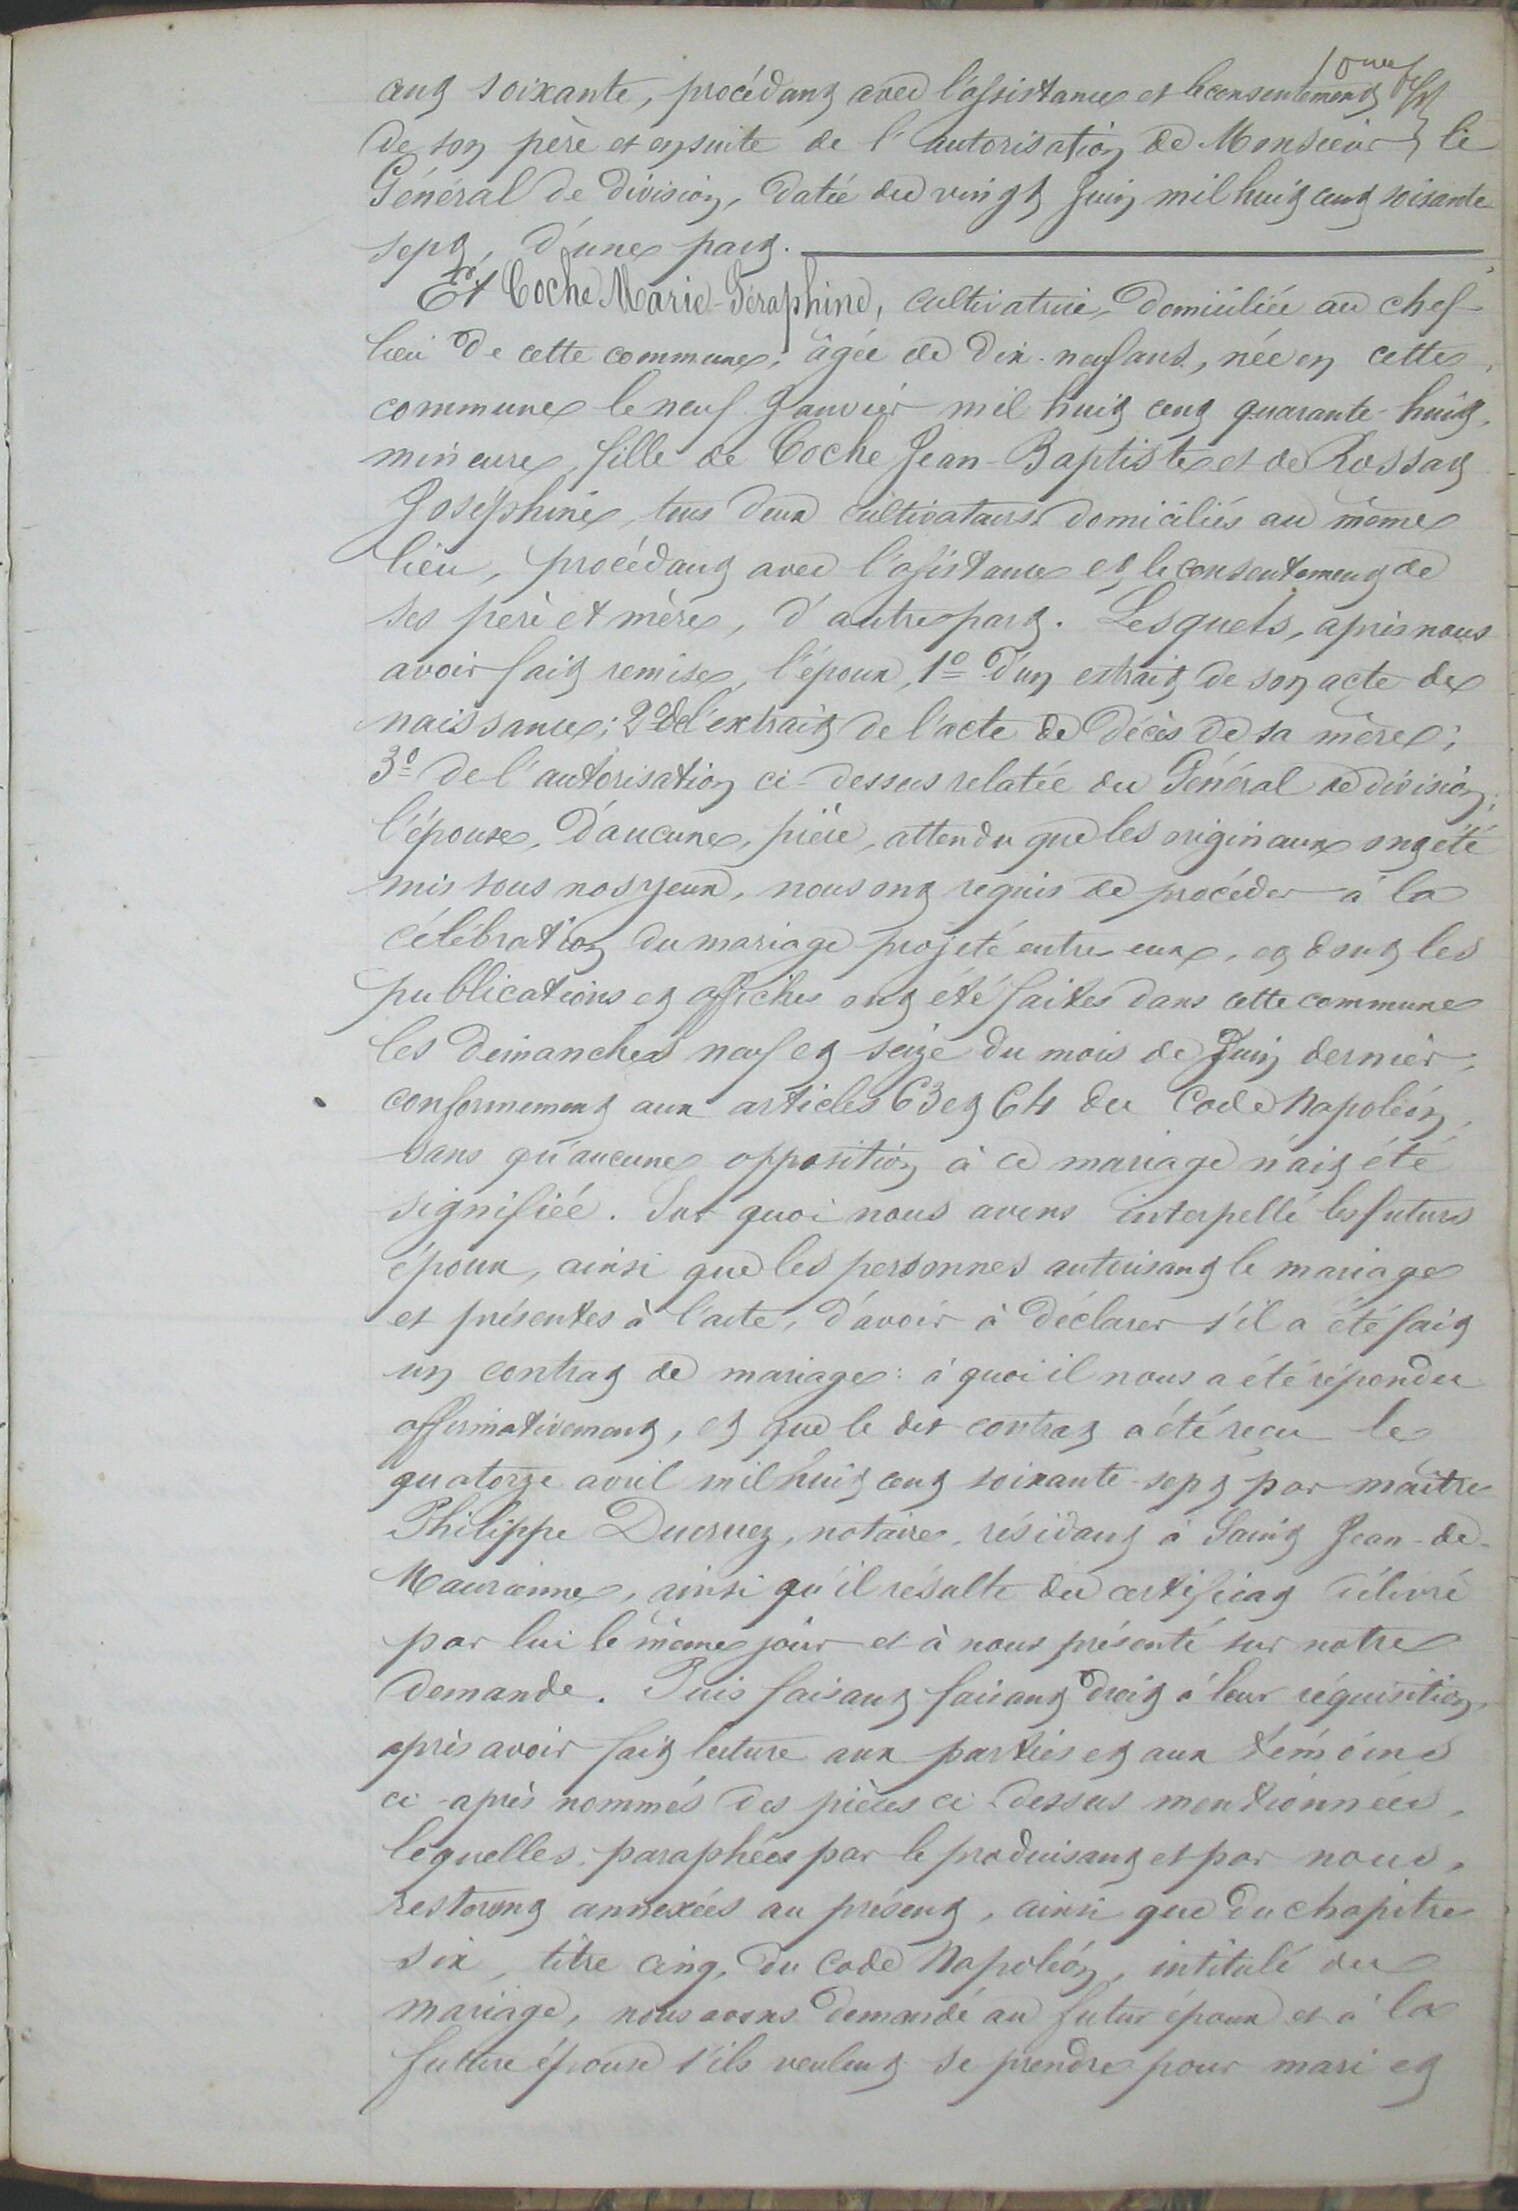 cent soixante, procédant avec l'assistance et le consentement
de son père et ensuite de l'autorisation de Monsieur le
Général de division, datée du vingt Juin mil huit cent soixante
sept, d'une part.
Et Coche Marie-Séraphine, cultivatrice, domiciliée au chef-
lieu de cette commune, âgée de dix-neuf ans, née en cette
commune le neuf Janvier mil huit cent quarante-huit,
mineure, fille de Coche Jean-Baptiste et de Rossat
Joséphine, tous deux cultivateurs domiciliés au même
lieu, procédant avec l'assistance et le consentement de
ses père et mère, d'autre part. Lesquels, après nous
avoir fait remise, l'époux, 1º d'un extrait de son acte de
naissance; 2º de l'extrait de l'acte de décès de sa mère;
3º de l'autorisation ci-dessus relatée du Général de division;
l'épouse, d'aucune pièce, attendu que les originaux ont été
mis sous nos yeux, nous ont requis de procéder à la
célébration du mariage projeté entre eux, et dont les
publications et affiches ont été faites dans cette commune
les dimanches neuf et seize du mois de Juin dernier,
conformement aux articles 63 et 64 du Code Napoléon,
sans qu'aucune opposition à ce mariage n'ait été
signifiée. Sur quoi nous avons interpellé les futurs
époux, ainsi que les personnes autorisant le mariage
et présentes à l'acte, d'avoir à déclarer s'il a été fait
un contrat de mariage: à quoi il nous a été répondu
affirmativement, et que le dit contrat a été reçu le
quatorze avril mil huit cent soixante-sept par maître
Philippe Ducruez, notaire, résidant à Saint Jean-de-
Maurienne, ainsi qu'il résulte du certificat délivré
par lui le même jour et à nous présenté sur notre
demande. Puis faisant faisant droit à leur réquisition,
après avoir fait lecture aux parties et aux témoins
ci-après nommés des pièces ci-dessus mentionnées,
lequelles, paraphées par le produisant et par nous,
resteront annexées au présent, ainsi que du chapitre
six, titre cinq, du Code Napoléon, intitulé du
mariage, nous avons demandé au futur époux et à la
future épouse s'ils veulent se prendre pour mari et